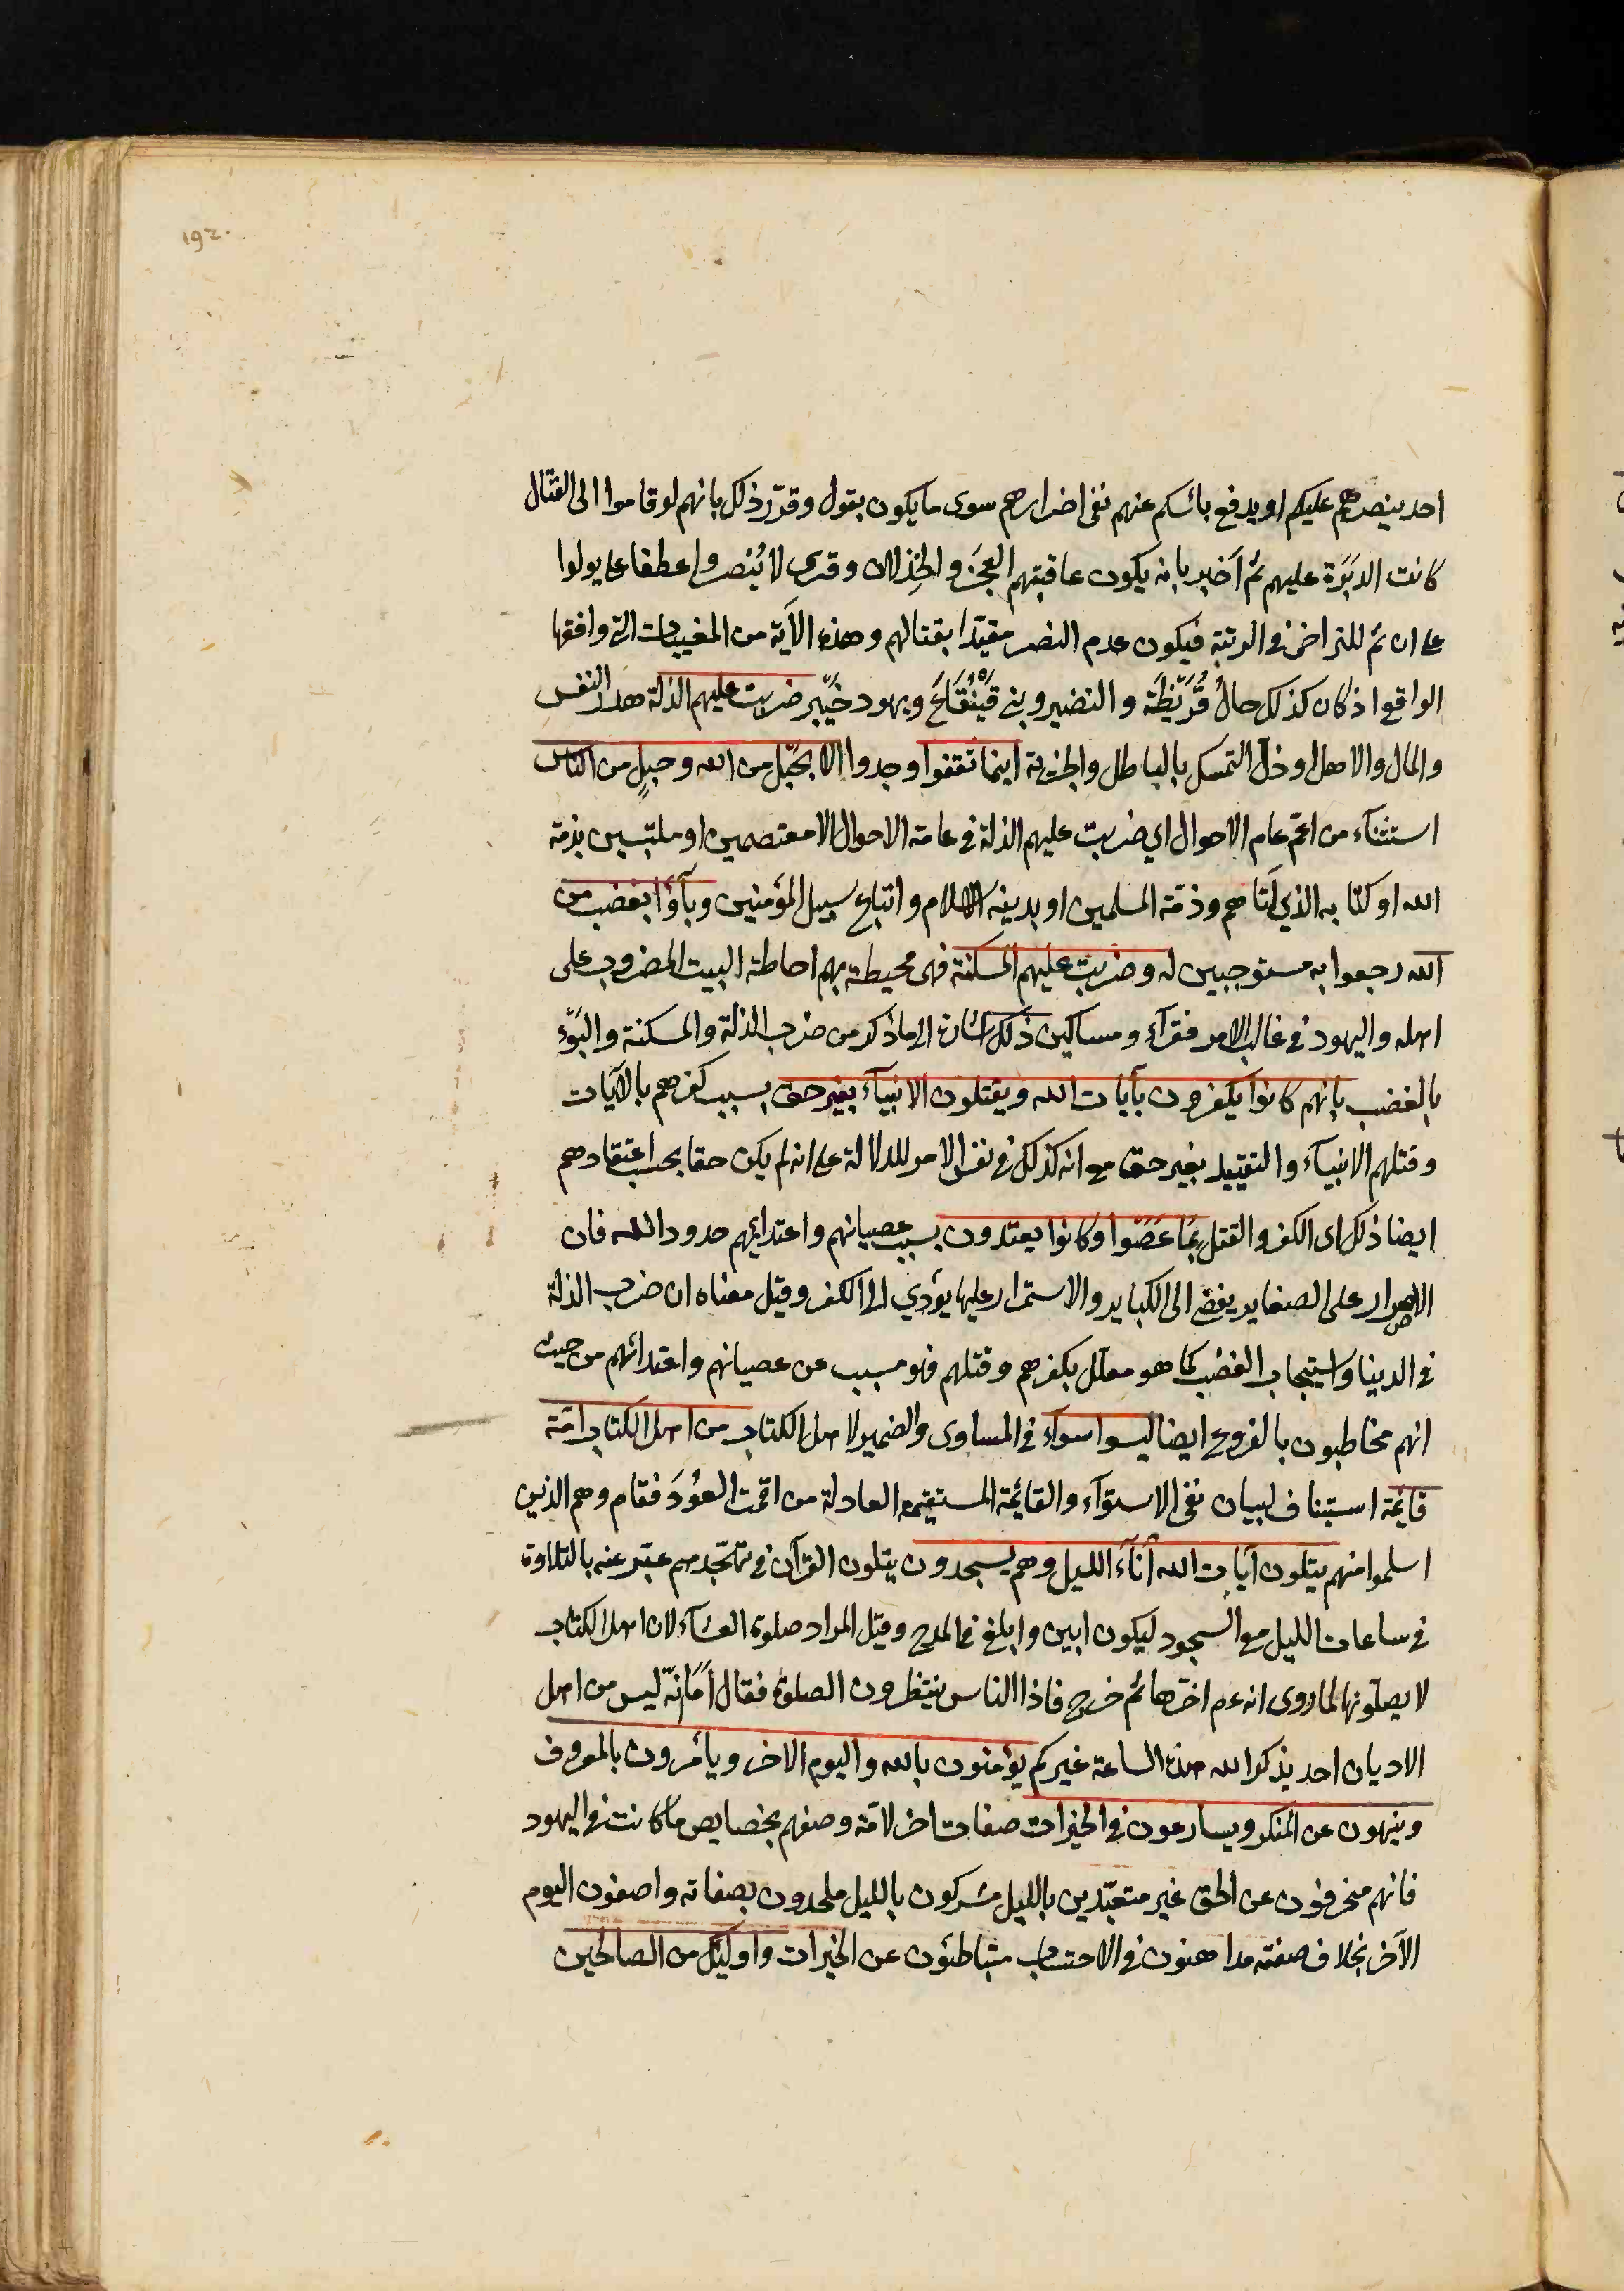 192.
احد ينصرهم عليكم او يدفع بائسكم عنهم نفى اضرارهم سوى ما يكون بقول وقرّر ذلك بانهم لو قاموا الى القتال
كانت الدَبَرَة عليهم ثم اَخبر بانه يكون عاقبتهم العَجزَ والخِذلان وقرى لا يُنصروا عطفا على يولوا
على ان ثم للتراخى فى الرتبة فيكون عدم النصر مقيّدا بقتالهم وهذه الآية من المغيبات التى وافقها
الواقع اذ كان كذلك حالُ قُرَيْظَة والنضير وبنى قَيْنُقَاعَ ويهود خَيْبر ضربت عليهم الذلة هدر النفس
والمال والاهل او ذلّ التمسك بالباطل والجزية اينما ثقفوا وجدوا الا بحَبْل من الله وحبلٍ من الناس
استثناء من اعمّ عام الاحوال اي ضربت عليهم الذلة فى عامة الاحوال الا معتصمين او ملتبسين بذمة
الله او كتابه الذي آتاهم وذمّة المسلمين او بدينه الاسلام واتباع سبيل المؤمنين وبآؤا بغضب من
الله رجعوا به مستوجبين له وضربت عليهم المسكنة فهى محيطة بهم احاطة البيت المضروب على
اهله واليهود فى غالب الامر فقرآء ومساكين ذلك اشارة الى ما ذكر من ضرب الذلة والمسكنة والبَوْء
بالغضب بانهم كانوا يكفرون بآيات الله ويقتلون الانبيآء بغير حق بسبب كفرهم بالآيات
وقتلهم الانبيآء والتقييد بغير حق مع انه كذلك فى نفس الامر للدلالة على انه لم يكن حقا بحسب اعتقادهم
ايضا ذلك اى الكفر والقتل بمَا عَصَوْا وكانوا يعتدون بسبب عصيانهم واعتدائهم حدود الله فان
الاصرار على الصغاير يفضى الى الكباير والاستمرار عليها يؤدي الى الكفر وقيل معناه ان ضرب الذلة
فى الدنيا واستيجاب الغضب كما هو معلّل بكفرهم وقتلهم فهو مسبب عن عصيانهم واعتدائهم من حيث
انهم مخاطبون بالفروع ايضا ليسوا سوآء فى المساوى والضمير لاهل الكتاب من اهل الكتاب امّة
قايمة استيناف لبيان نفى الاستوآء والقائمة المستقيمة العادلة من اقمت العُوْدَ فقام وهم الذين
اسلموا منهم يتلون آيات الله آنآء الليل وهم يسجدون يتلون القرآن فى تهجّدهم عبّر عنه بالتلاوة
فى ساعات الليل مع السجود ليكون ابين وابلغ فى المدح وقيل المراد صلوة العشآء لان اهل الكتاب
لا يصلّونها لما روى انه عم اخّرها ثم خرج فاذا الناس ينتظرون الصلوة فقال أمَا انّه ليس من اهل
الاديان احد يذكر الله هذه الساعة غيركم يؤمنون بالله واليوم الاخر ويامُرون بالمعروف
وينهون عن المنكر ويسارعون فى الخيرات صفات اخر لامّة وصفهم بخصايص ما كانت فى اليهود
فانهم منحرفون عن الحق غير متعبّدين بالليل مشركون بالليل ملحدون بصفاته واصفون اليوم
الآخر بخلاف صفته مداهنون فى الاحتساب متباطئون عن الخيرات واوليك من الصالحين